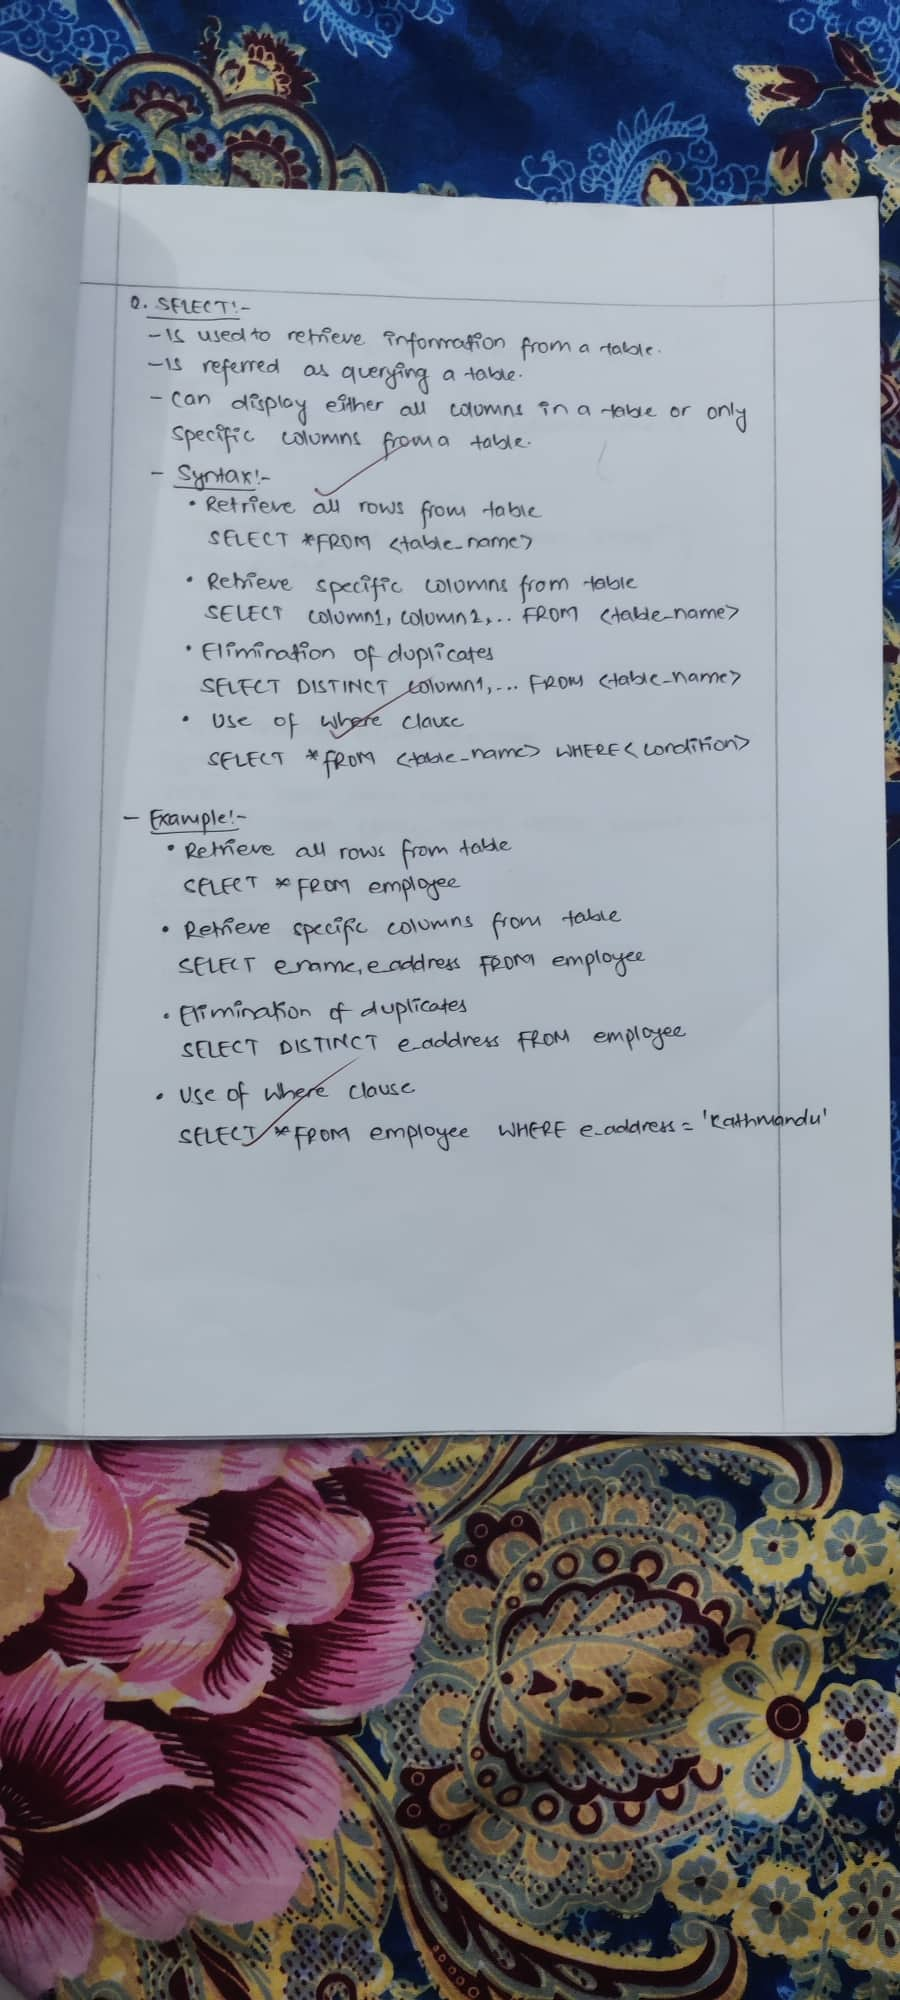 Q. SELECT:-
- Is used to retrieve information from a table.
- Is referred as querying a table.
- Can display either all columns in a table or only
specific columns from a table.
- Syntax:-
• Retrieve all rows from table
SELECT *FROM <table_name>
• Retrieve specific columns from table
SELECT column1, column2,.. FROM <table_name>
• Elimination of duplicates
SELECT DISTINCT column1,... FROM <table_name>
• Use of where clause
SELECT *FROM <table_name> WHERE<condition>
- Example:-
• Retrieve all rows from table
SELECT * FROM employee
• Retrieve specific columns from table
SELECT ename, e_address FROM employee
• Elimination of duplicates
SELECT DISTINCT e_address FROM employee
• Use of where clause
SELECT *FROM employee WHERE e_address = 'Kathmandu'